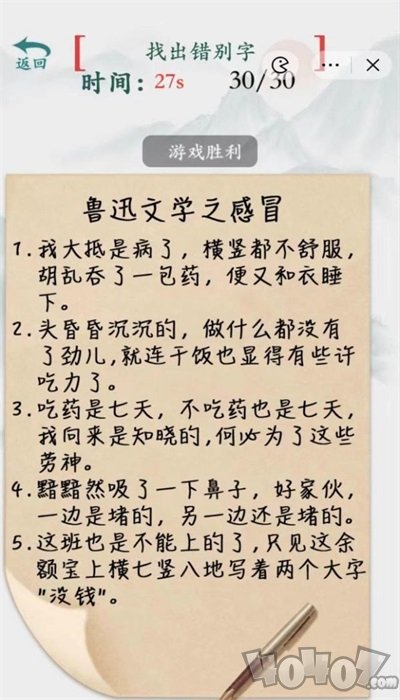 返回
找出错别字
时间：27s
30/30
游戏胜利
鲁迅文学之感冒
1. 我大抵是病了，横竖都不舒服，
胡乱吞了一包药，便又和衣睡
下。
2. 头昏昏沉沉的，做什么都没有
了劲儿,就连干饭也显得有些许
吃力了。
3. 吃药是七天，不吃药也是七天，
我向来是知晓的,何必为了这些
劳神。
4. 黯黯然吸了一下鼻子，好家伙，
一边是堵的，另一边还是堵的。
5. 这班也是不能上的了,只见这余
额宝上横七竖八地写着两个大字
"没钱"。
40407.com